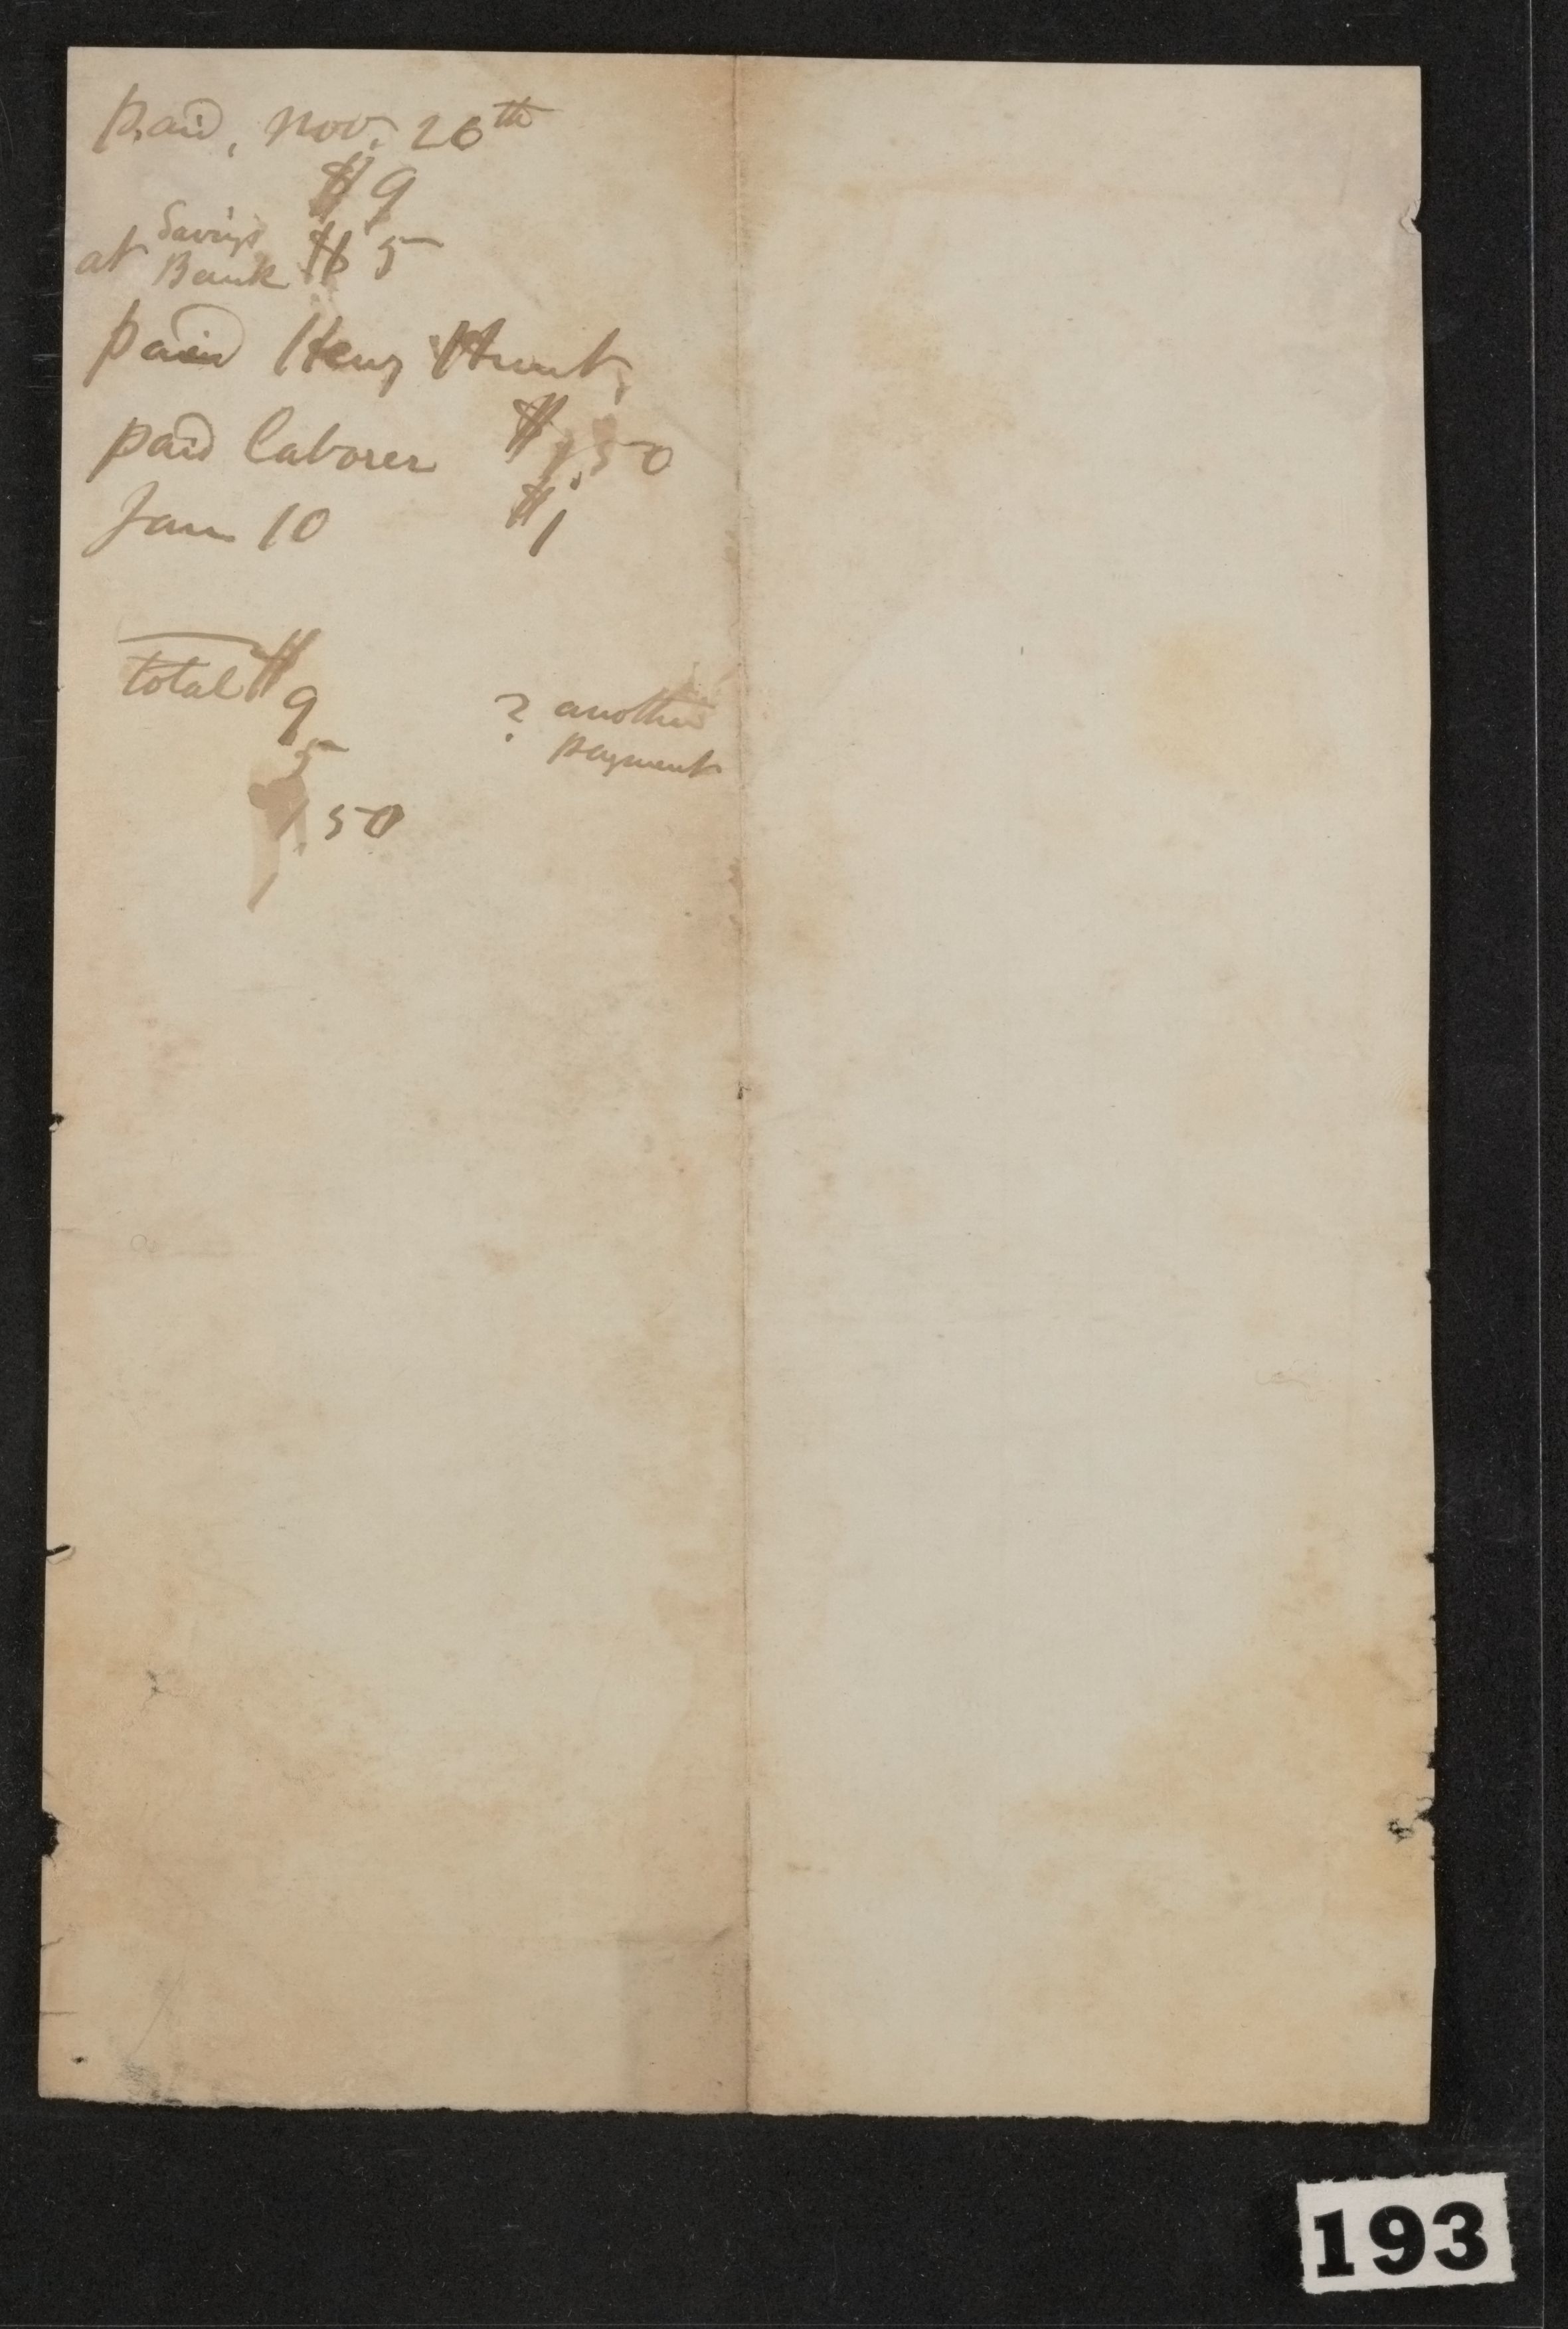 paid, Nov. 26th
$9
at Savings
Bank $5
paid Henry Hunt,
paid laborer $1.50
Jan 10 $1
total $
9
5
1.50
1
? another
payment
193